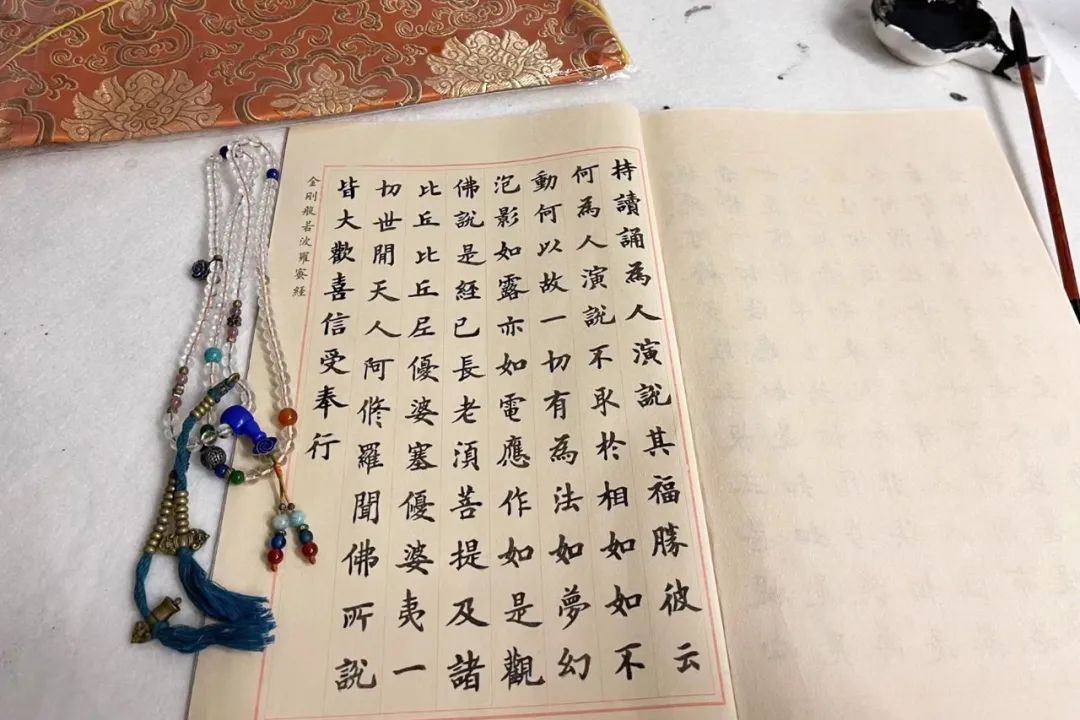 持讀誦為人演說其福勝彼云
何為人演說不取於相如如不
動何以故一切有為法如夢幻
泡影如露亦如電應作如是觀
佛說是經已長老須菩提及諸
比丘比丘尼優婆塞優婆夷一
切世間天人阿修羅聞佛所說
皆大歡喜信受奉行
金剛般若波羅蜜經